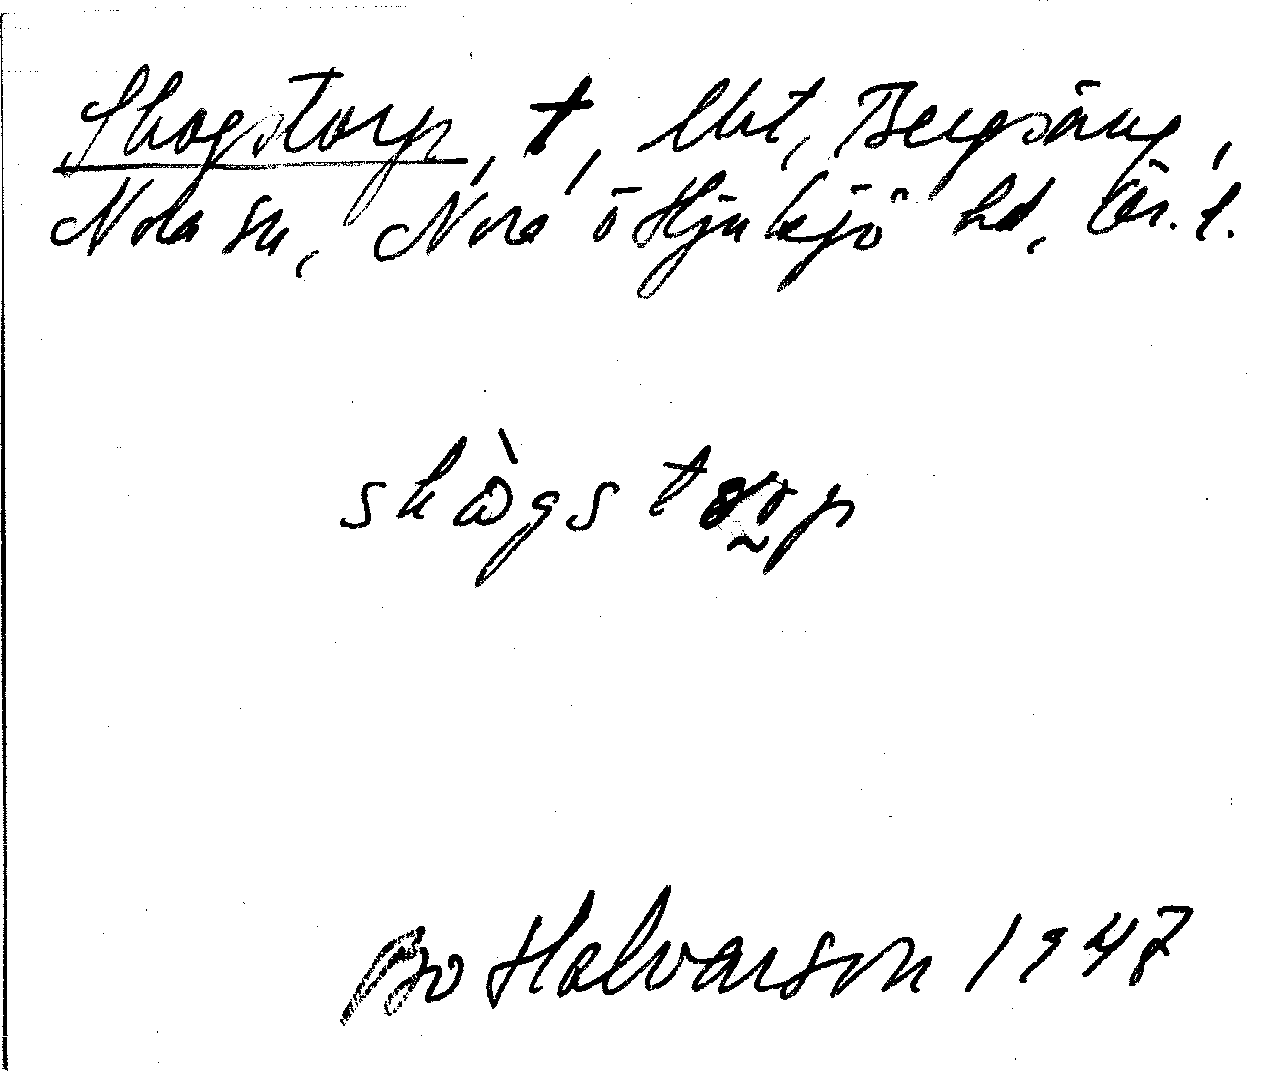 Skogstorp, t, Ukt, Bergsäng,
Nora sn, Nora ö Hjulsjö hd, Ör. l.
skògstorp
Bo Halvarson 1947